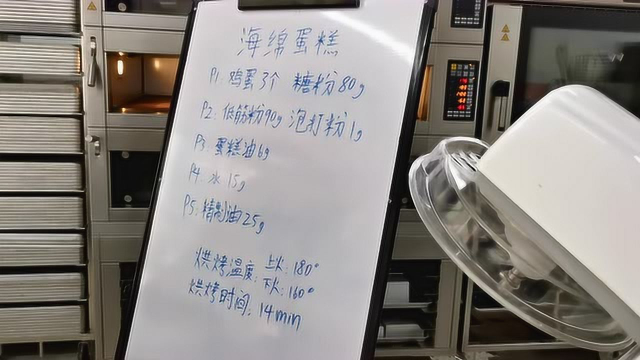 海绵蛋糕
P1: 鸡蛋3个 糖粉80g
P2: 低筋粉90g 泡打粉1g
P3: 蛋糕油6g
P4: 水15g
P5: 精制油25g
烘烤温度: 上火: 180°
下火: 160°
烘烤时间: 14min